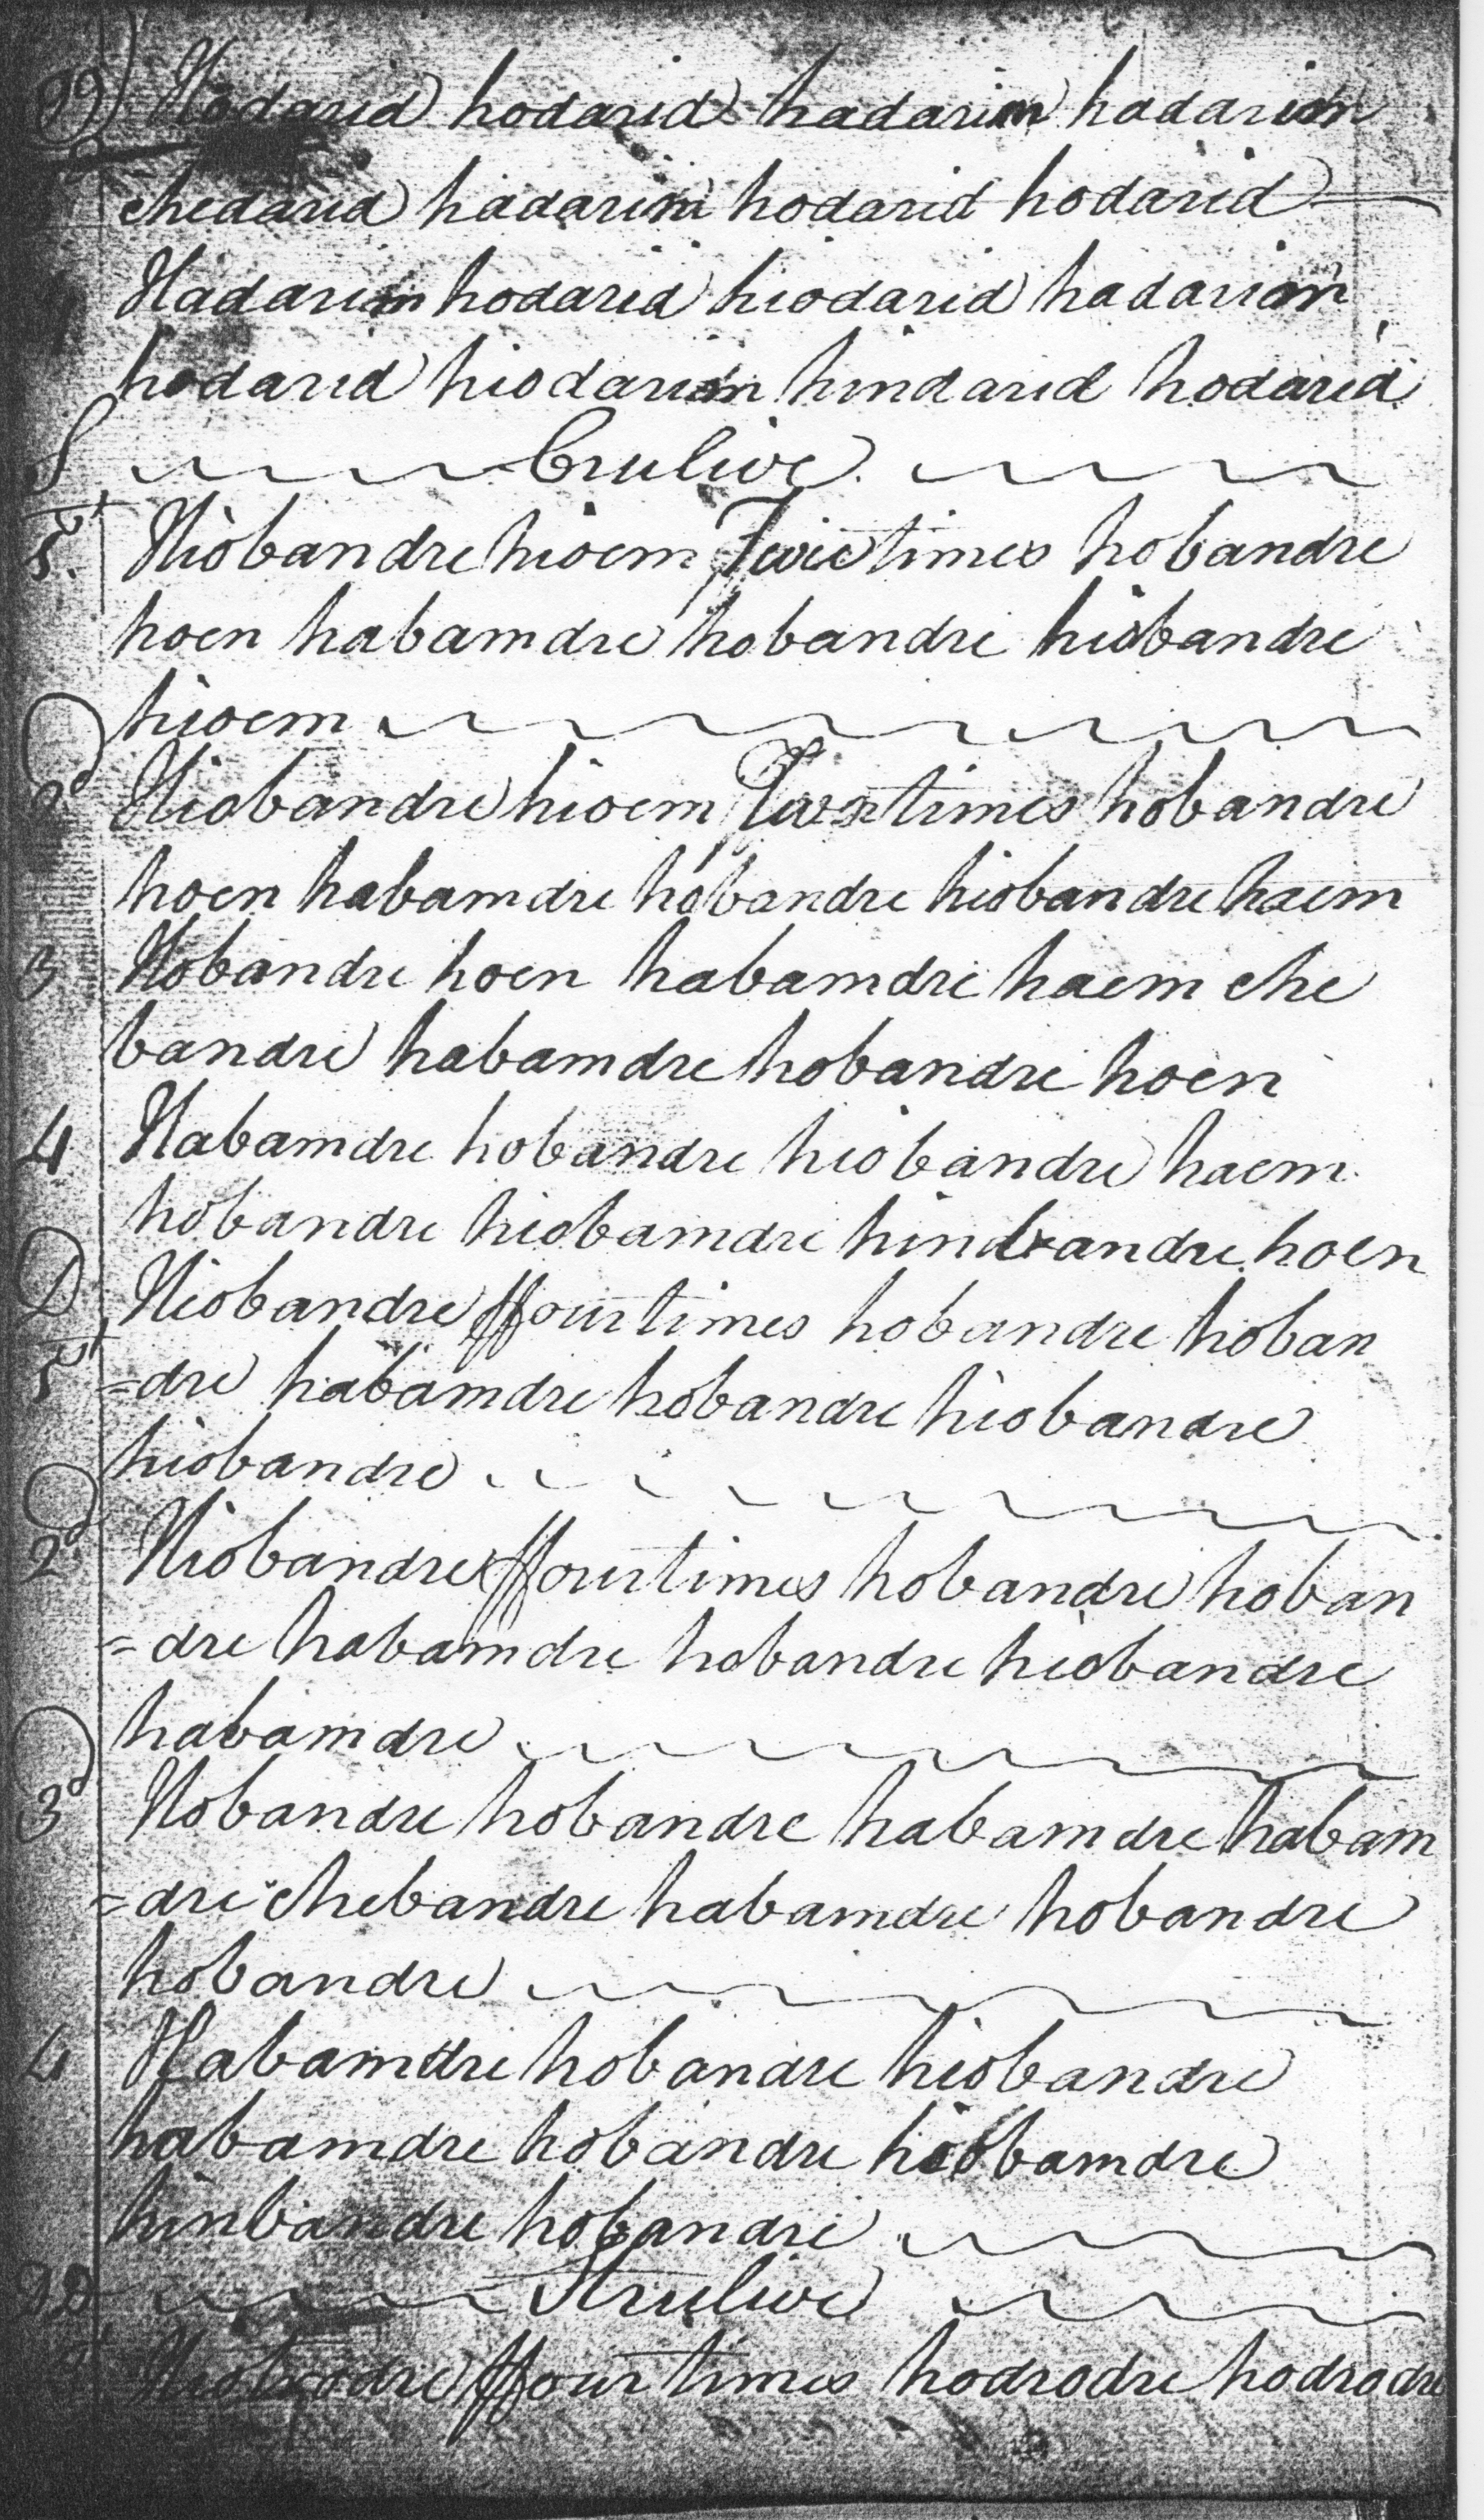 Hodarid hodarid hadarim hadarim
chedarid hadarim hodarid hodarid
Hadarim hodarid hiodarid hadarim
hodarid hiodarim hindarid hodarid
S Crulive
1 Hiobandre hioem Twice times hobandre
hoen habamdre hobandre hiobandre
hioem
D 2 Hiobandre hioem times hobandre
hoen habamdre hobandre hiobandre haem
3 Hobandre hoen habamdre haem che
bandre habamdre hobandre hoen
4 Habamdre hobandre hiobandre haem
hobandre hiobamdre hinbandre hoen
D 1 Hiobandre ffour times hobandre hoban
=dre habamdre hobandre hiobandre
hiobandre
D 2 Hiobandre ffour times hobandre hoban
=dre habamdre hobandre hiobandre
habamdre
D 3 Hobandre hobandre habamdre habam
=dre chebandre habamdre hobandre
hobandre
4 Habamdre hobandre hiobandre
habamdre hobandre hiobamdre
hinbandre hobandre
Strulive
ffour times hodrodre hodrodre